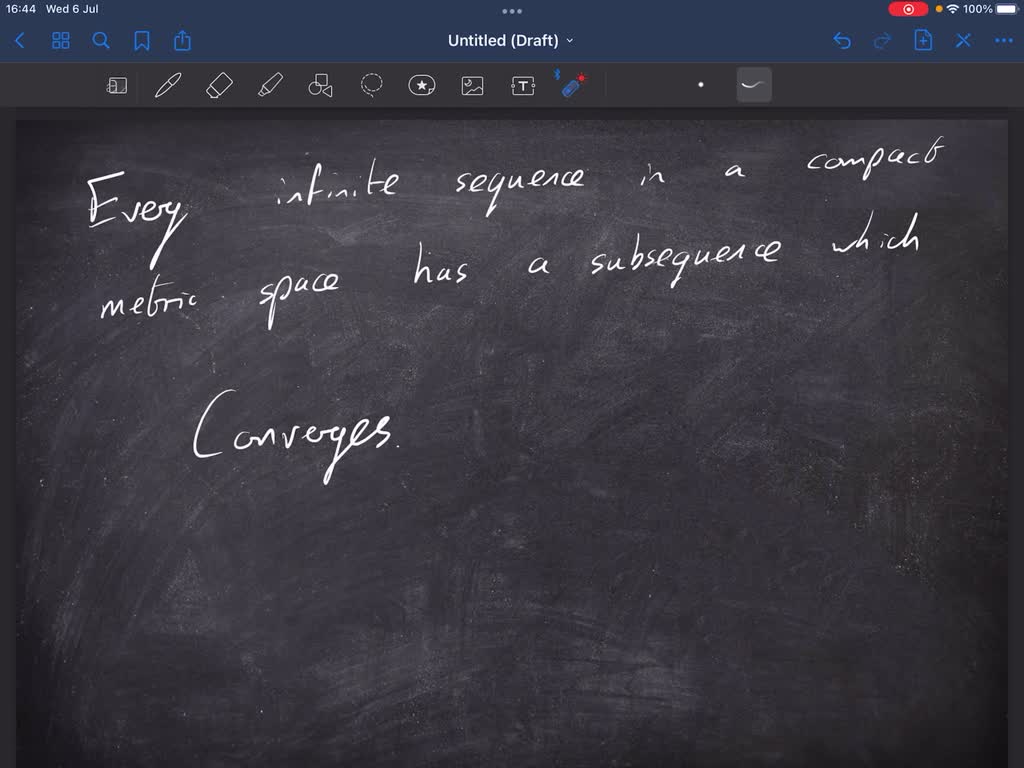 16:44 Wed 6 Jul
100%
Untitled (Draft)
T
Every infinite sequence in a compact
metric space has a subsequence which
Converges.